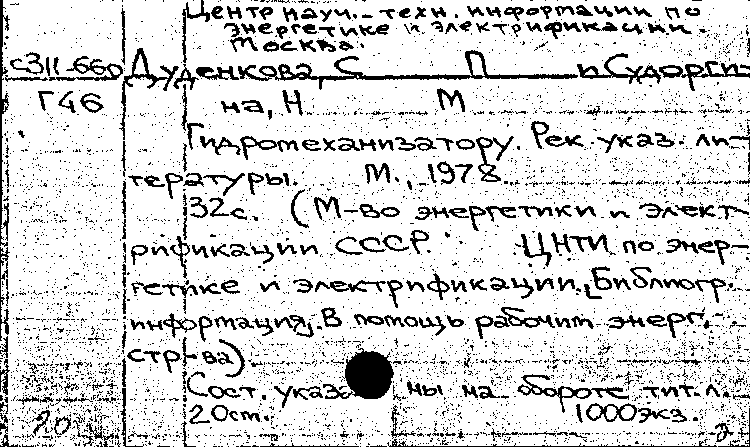 Центр науч.-техн. информации по
энергетике и электрификации.
Москва.
сЗ11-660 Дуденкова, С П и Судорги-
Г46 на, Н М
Гидромеханизатору. Рек. указ. ли-
тературы. М., 1978.
32с. (М-во энергетики и элект-
рификации СССР. ЦНТИ по энер-
гетике и электрификации. Библиогр.
информация. В помощь рабочим энерг.
стр-ва).
Сост. указаны на обороте тит. л.
20 20см. 1000экз.